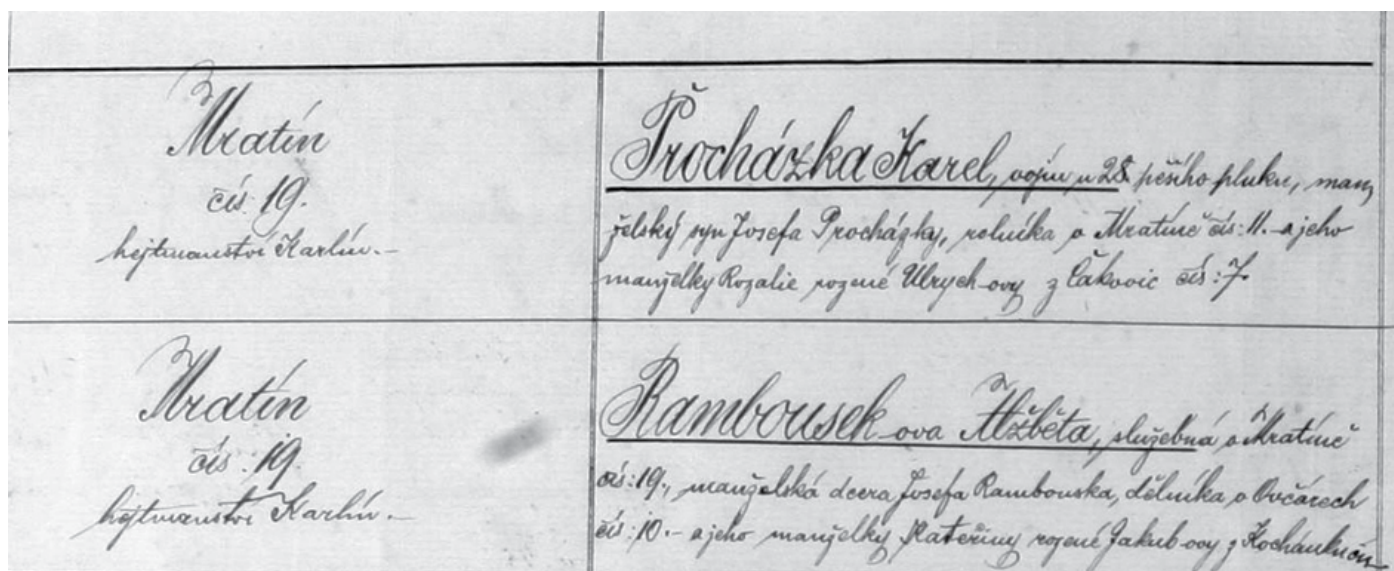 Mratín
čís. 19.
hejtmanství Karlín.-
Procházka Karel, vojín u 28 pěšího pluku, man,
želský syn Josefa Procházky, rolníka v Mratíně čís: 11.- a jeho
manželky Rozalie rozené Ulrych-ovy z Čakovic čís: 7.
Mratín
čís: 19.
hejtmanství Karlín.-
Rambousek-ova Alžběta, služebná v Mratíně
čís: 19., manželská dcera Josefa Rambouska, dělníka v Ovčárech
čís: 10.- a jeho manželky Kateřiny rozené Jakub-ovy z